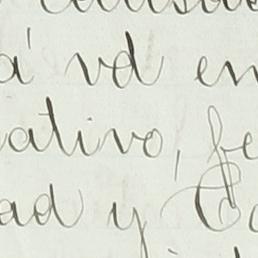 á vd en
ativo, fe
ad y